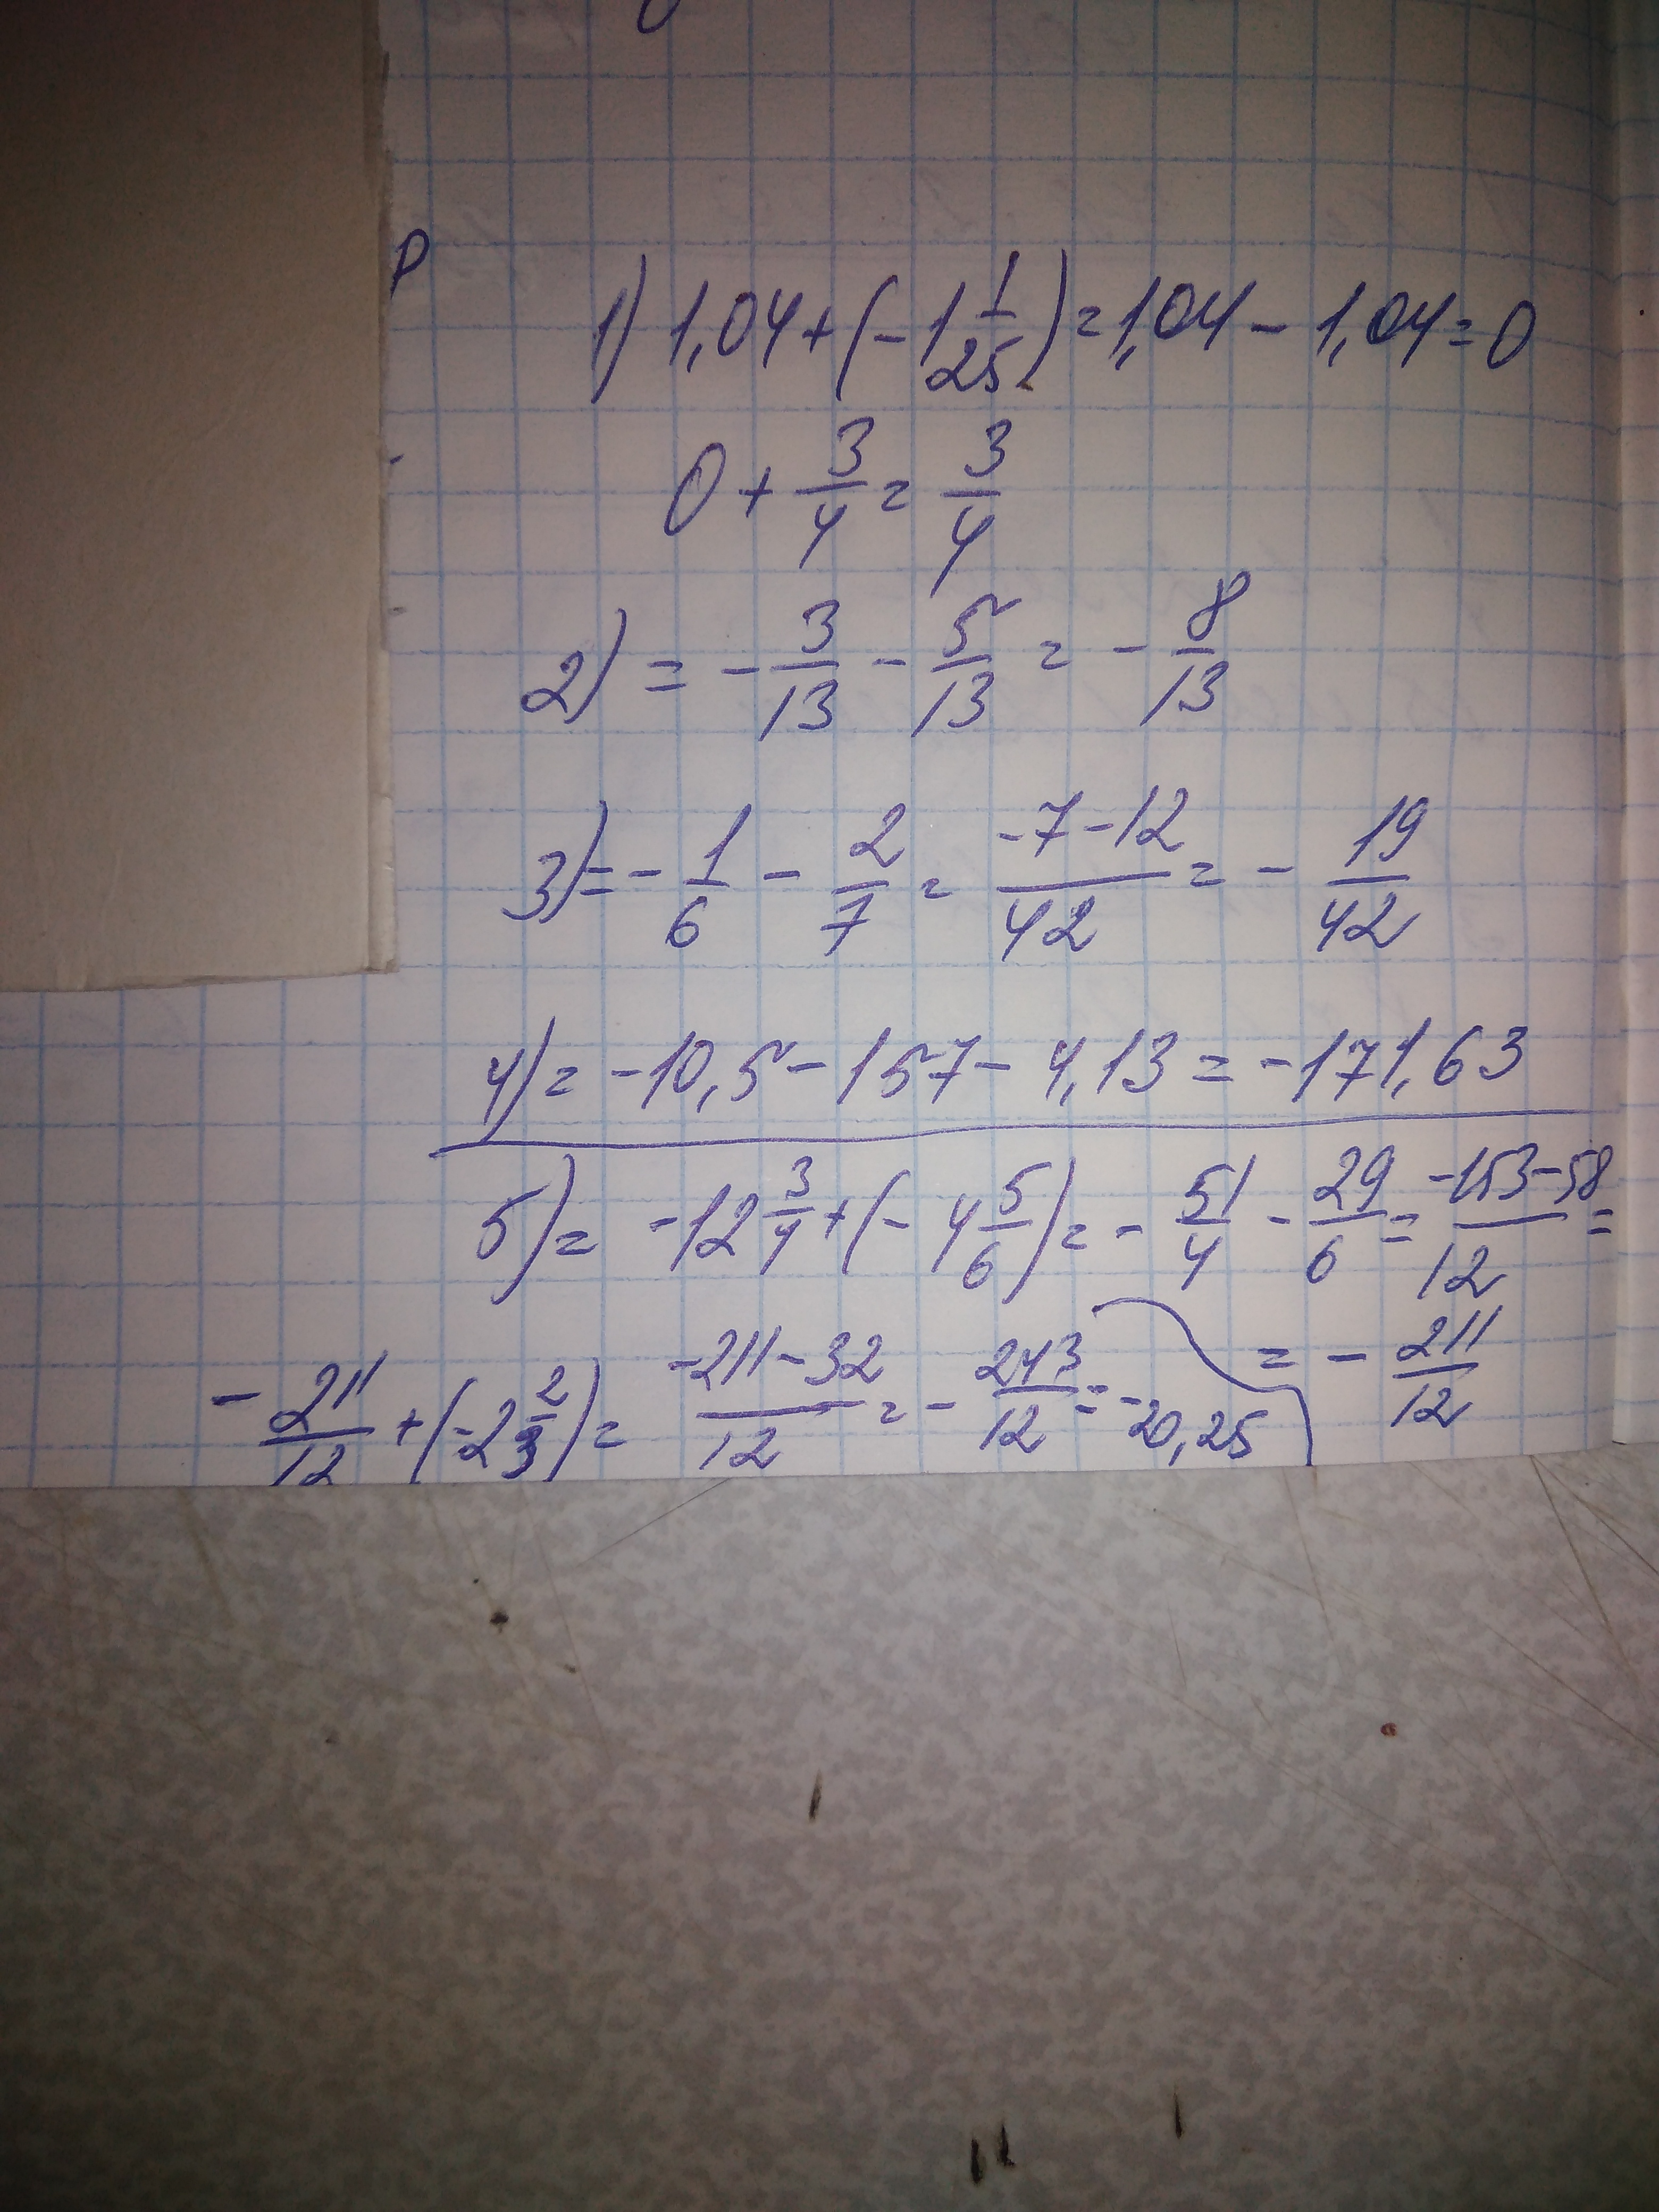 1) 1,04 + (-1 1/25) = 1,04 - 1,04 = 0
0 + 3/4 = 3/4
2) = - 3/13 - 5/13 = - 8/13
3) = - 1/6 - 2/7 = -7-12/42 = - 19/42
4) = -10,5 - 157 - 4,13 = -171,63
5) = -12 3/4 + (- 4 5/6) = - 51/4 - 29/6 = -153-58/12 =
= - 211/12
- 211/12 + (-2 2/3) = -211-32/12 = - 243/12 = -20,25